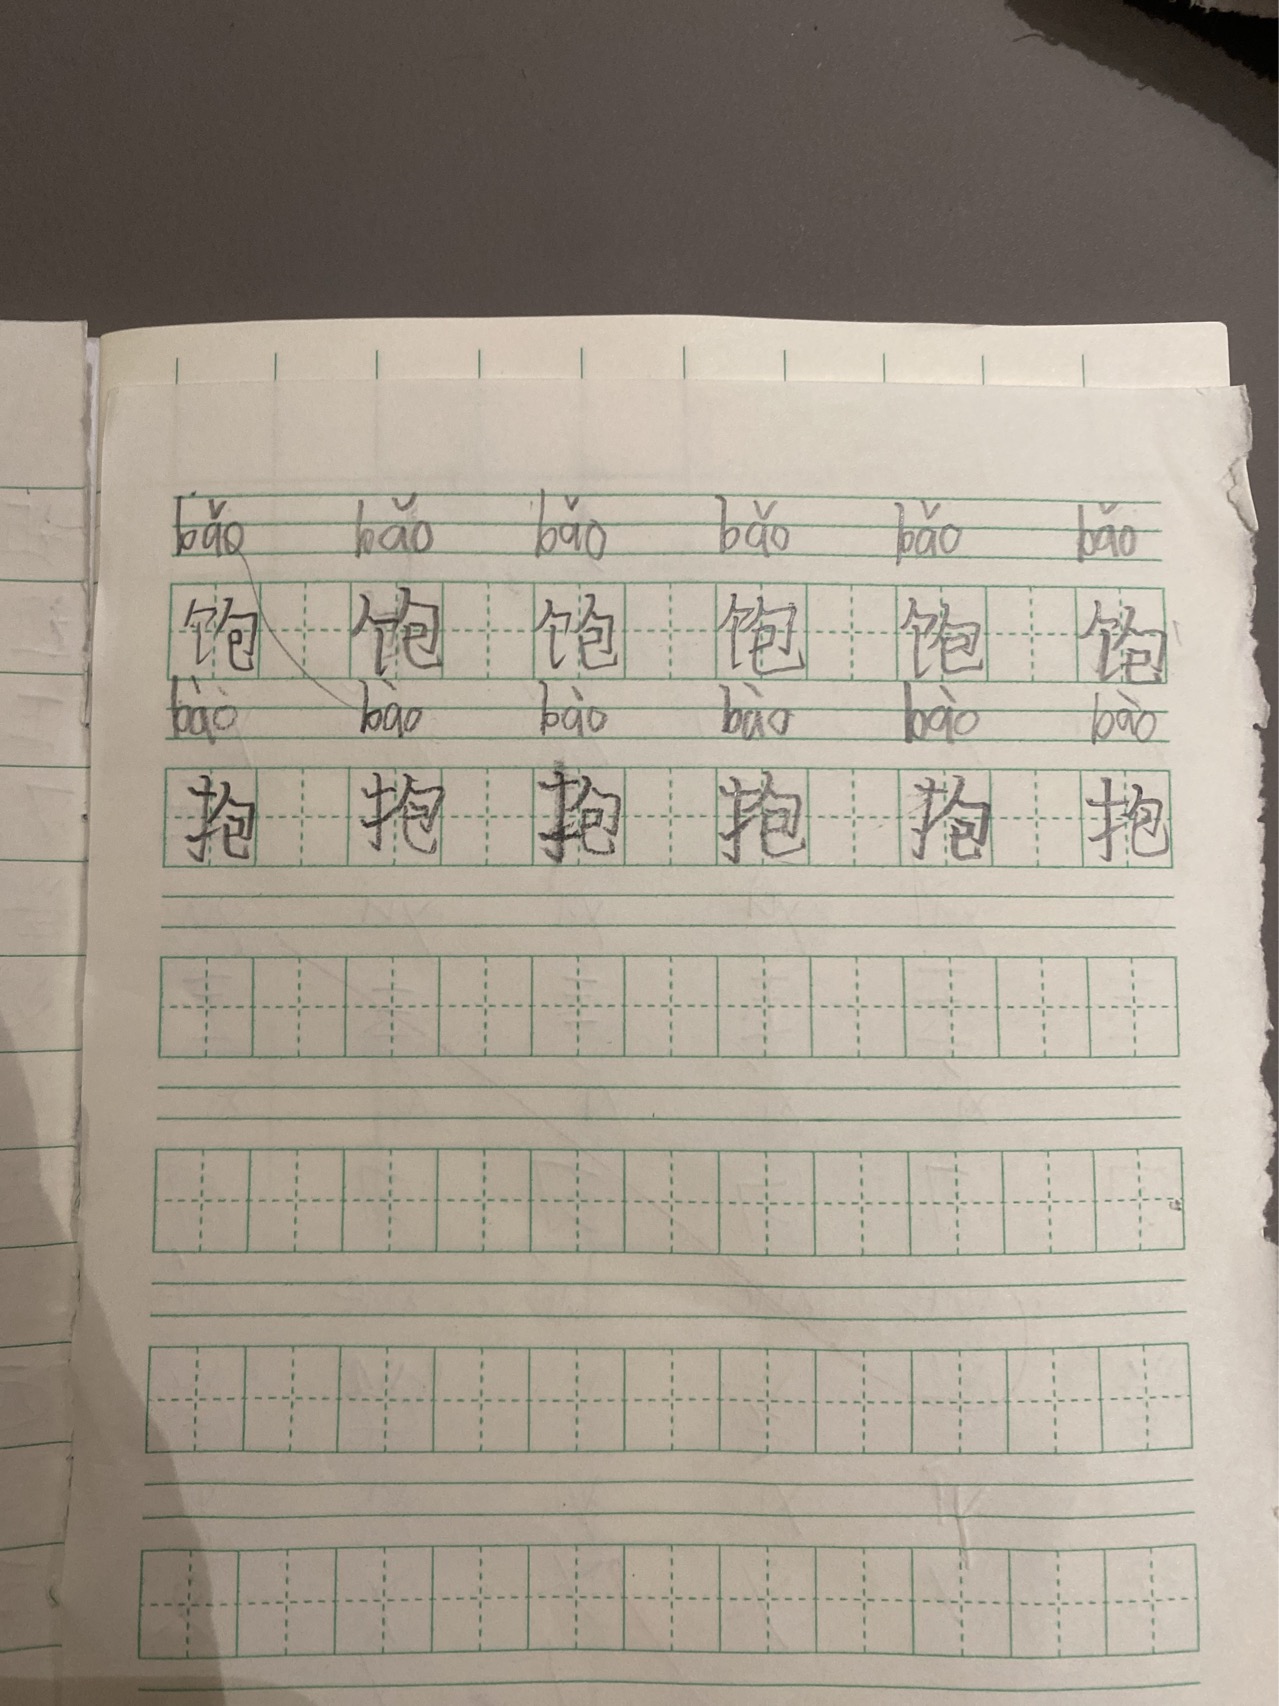 bǎo bǎo bǎo bǎo bǎo bǎo
饱 饱 饱 饱 饱 饱
bào bào bào bào bào bào
抱 抱 抱 抱 抱 抱